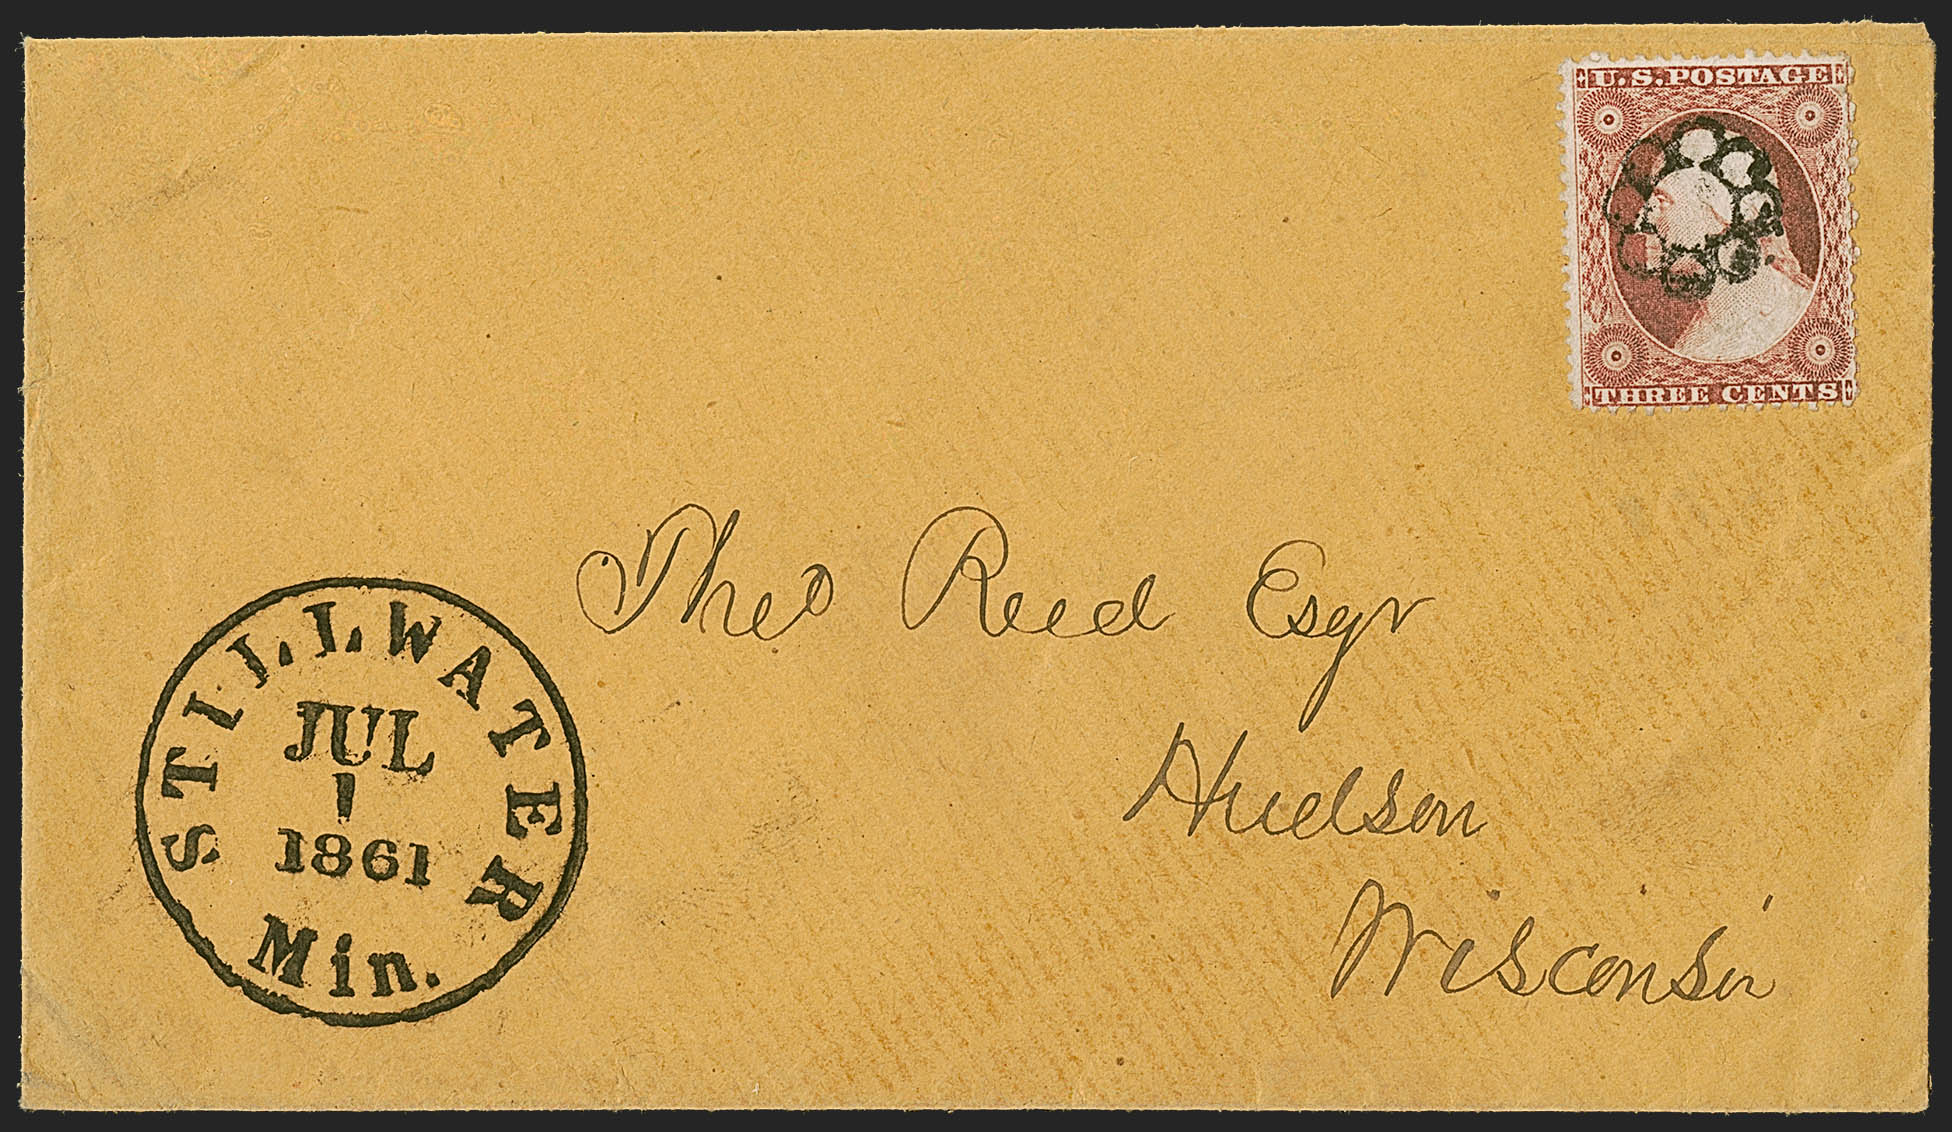 U.S. POSTAGE
THREE CENTS
Theo Reed Esqr
Hudson
Wisconsin
STILLWATER
JUL
1
1861
Min.